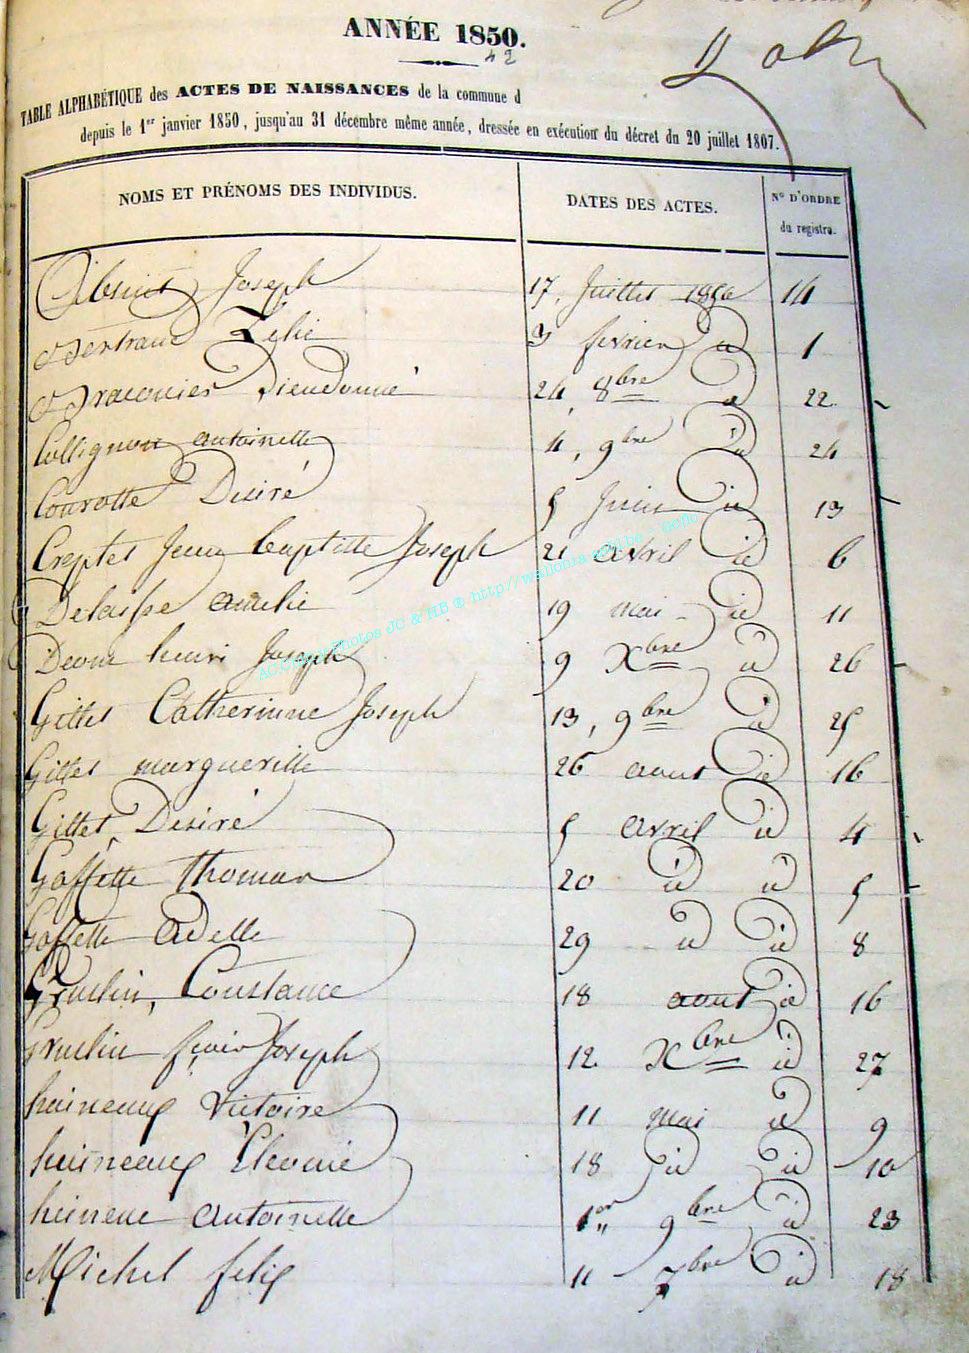 ANNÉE 1850.
42
TABLE ALPHABÉTIQUE des ACTES DE NAISSANCES de la commune d
depuis le 1er janvier 1850, jusqu'au 31 décembre même année, dressée en exécution du décret du 20 juillet 1807.
NOMS ET PRÉNOMS DES INDIVIDUS. DATES DES ACTES. N° D'ORDRE
du registre.
Joseph 17, Juillet 1850 14
Bertrand Zélie 3 fevrier id 1
Draconier Dieudonné 24, 8bre id 22
Collignon antoinette 11, 9bre id 24
Courotte Desiré 5 Juin id 13
Creptes Jean Baptiste Joseph 21 avril id 6
Delaisse amelie 19 mai id 11
Deom henri Joseph 9 Xbre id 26
Gillet Catherinne Joseph 13, 9bre id 25
Gillet margueritte 26 aout id 16
Gillet, Desiré 5 avril id 4
Goffette thomas 20 id id 5
Goffette adelle 29 id id 8
Gruslin, Constance 18 aout id 16
Gruslin Joseph 12 Xbre id 27
haineaux Victoire 11 mai id 9
heineaux Eleonie 18 id id 10
heineue antoinette 1er 9bre id 23
Michel felix 11 7bre id 18
ACCGen Photos JC & HB @ http://wallobra.epibl.be - Geno